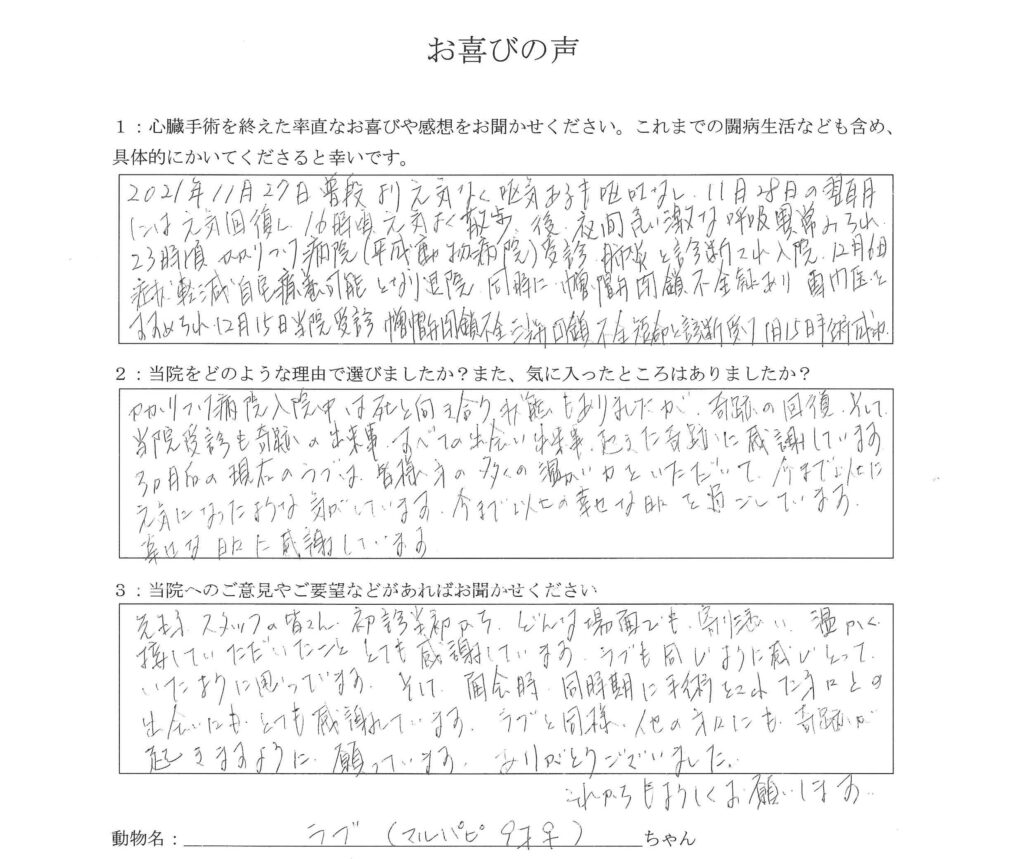 お喜びの声
1：心臓手術を終えた率直なお喜びや感想をお聞かせください。これまでの闘病生活なども含め、
具体的にかいてくださると幸いです。
2021年11月27日 普段より元気なく吐気あるも嘔吐なし、11月28日の翌日
には元気回復し、16時頃元気よく散歩、後、夜間 急激な呼吸異常みられ
23時頃 かかりつけ病院(平成動物病院)受診 肺炎と診断され入院、12月6日
症状軽減 自宅療養可能となり退院、同時に 僧帽弁閉鎖不全症あり 専門医を
すすめられ、12月15日当院受診 僧帽弁閉鎖不全 三尖弁閉鎖不全 と診断受け 1月15日手術成功。
2：当院をどのような理由で選びましたか？また、気に入ったところはありましたか？
かかりつけ病院入院中は死と向き合う状態もありましたが、奇跡の回復、そして
当院受診も奇跡の出来事、すべての出会い、出来事、起きた奇跡に感謝しています
3ヵ月后の現在のラブは、皆様方の多くの温かい力をいただいて、今まで以上に
元気になったような気がしています。今まで以上の幸せな日々を過ごしています。
幸せな日々に感謝しています
3：当院へのご意見やご要望などがあればお聞かせください
先生方、スタッフの皆さん、初診当初から、どんな場面でも、寄り添い、温かく
接していただいたこと とても感謝しています。ラブも同じように感じとって
いたように思っています。そして、面会時、同時期に手術をされた方々との
出会いにも、とても感謝しています。ラブと同様、他の方々にも、奇跡が
起きますように、願っています。ありがとうございました。
これからもよろしくお願いします
動物名：ラブ（マルパピ 9才♀）ちゃん